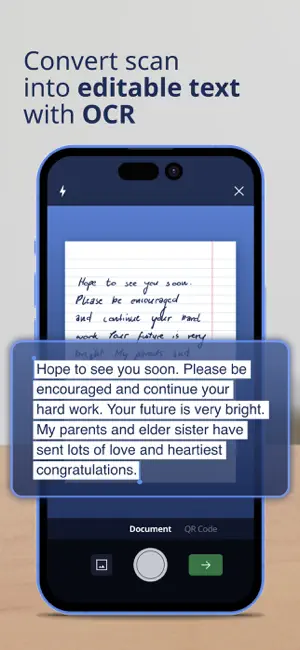 Convert scan
into editable text
with OCR
Hope to see you soon.
Please be encouraged
and continue your hard
work. Your future is very
bright. My parents and
Hope to see you soon. Please be
encouraged and continue your
hard work. Your future is very bright.
My parents and elder sister have
sent lots of love and heartiest
congratulations.
Document
QR Code